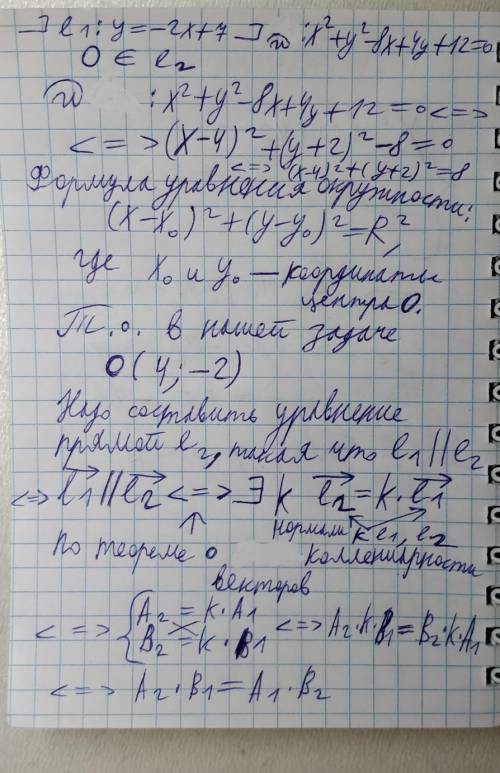 ⊐ l1: y=-2x+7 ⊐ w: x²+y²-8x+4y+12=0
O ∈ l2
w : x²+y²-8x+4y+12=0 <=>
<=> (x-4)²+(y+2)²-8=0
<=> (x-4)²+(y+2)²=8
Формула уравнения окружности:
(x-x₀)²+(y-y₀)²=R²,
где x₀ и y₀ — координаты
центра O.
Т.о. в нашей задаче
O(4;-2)
Надо составить уравнение
прямой l2, такая что l1||l2
<=> l1||l2 <=> ∃ k l2=k·l1
нормали к l1, l2
по теореме о коллениарности
векторов
<=> { A2=k·A1
B2=k·B1 <=> A2·k·B1=B2·k·A1
<=> A2·B1=A1·B2